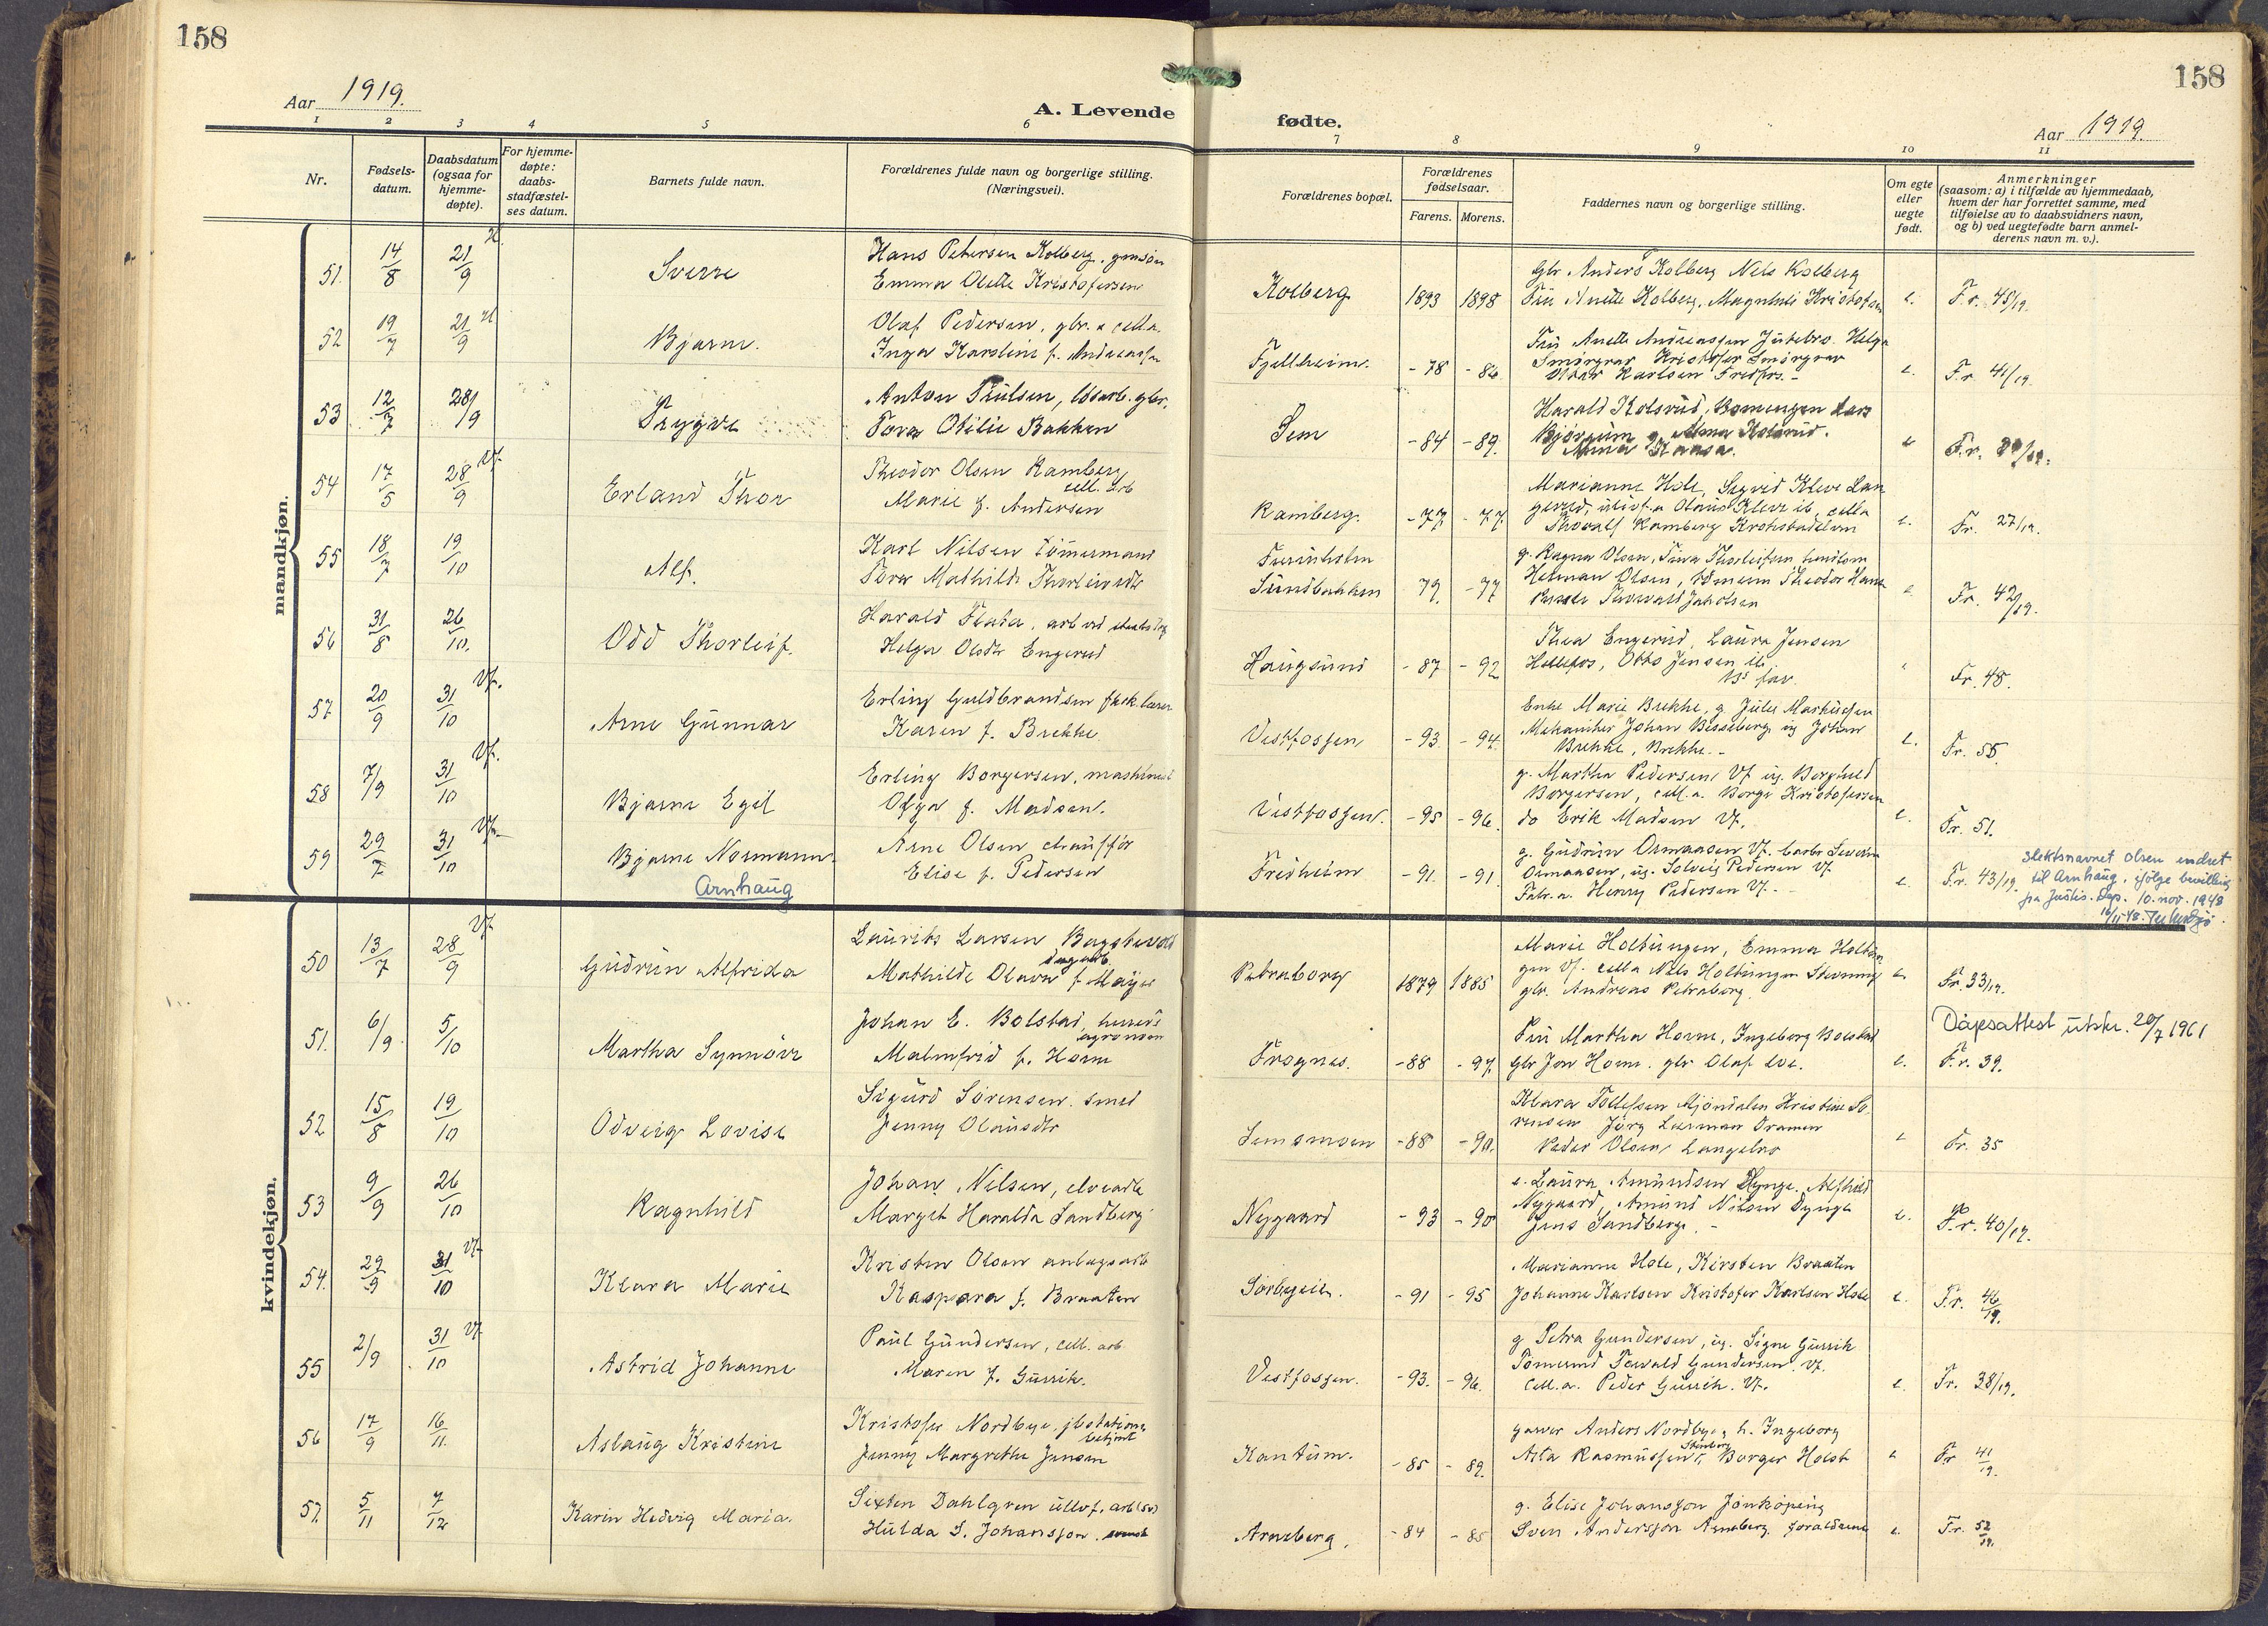 158
Aar 1919.
A. Levende
1 2 3 4 5 6
Nr.
Fødsels-
datum.
Daabsdatum
(ogsaa for
hjemme-
døpte).
For hjemme-
døpte:
daabs-
stadfæstel-
ses datum.
Barnets fulde navn.
Forældrenes fulde navn og borgerlige stilling.
(Næringsvei).
mandkjøn.
51. 14/8 21/9 Sverre
Hans Petersen Kolberg, gmsøn
Emma Olette Kristofersen
52 19/7 21/9 Bjarne.
Olaf Pedersen, gbr. & cell.a.
Inga Karoline f. Andreassen
53 12/7 28/9 Trygve
Anton Trulsen, løsarb. gbr.
Tora Otilie Bakken
54 17/5 28/9 Vf. Erland Thor
Theodor Olsen Kamberg
cell. arb
Marie f. Andersen
55 18/7 19/10 Alf.
Karl Nilsen tømmermand
Tora Mathilde Thorleivsdtr
56 31/8 26/10. Odd Thorleif.
Harald Flata, arb ved
Helga Olsdtr Engerud
57 20/9 31/10 Vf. Arne Gunnar
Erling Guldbrandsen
Karen f. Brekke
58 7/9 31/10 Vf. Bjarne Egil
Erling Borgersen, maskinist
Olga f. Madsen.
59 29/7 31/10 Vf. Bjarne Normann
Arnhaug
Arne Olsen chauffør
Elise f. Pedersen
kvindekjøn.
50 13/7 28/9 Vf. Gudrun Alfrida
Laurits Larsen
dagarb.
Mathilde Olava f.
51. 6/9 5/10 Martha Synnøve
Johan E. Bolstad, herreds
agronom
Malmfrid f. Horne
52 15/8 19/10 Odveig Lovise
Sigurd Sørensen. smed
Jenny Olausdtr
53 9/9 26/10 Ragnhild
Johan Nilsen, elvearb
Marget Haralda Sandberg
54. 29/9 31/10 Vf. Klara Marie
Kristen Olsen anlægsarb
Kaspara f. Braaten
55 2/9 31/10 Vf. Astrid Johanne
Paul Gundersen, cell. arb.
Maren f. Gurrik.
56 17/9 16/11. Aslaug Kristine
Kristofer Nordbye, jbstations
betjent
Jenny Margrethe Jensen
57. 5/11 7/12 Karin Hedvig Maria.
Sixten Dahlgren ulltøf. arb (sv)
Hulda S. Johansson, svensk
158
fødte.
Aar 1919.
7 8 9 10 11
Forældrenes bopæl.
Forældrenes
fødselsaar.
Farens. Morens.
Faddernes navn og borgerlige stilling.
Om egte
eller
uegte
født.
Anmerkninger
(saasom: a) i tilfælde av hjemmedaab,
hvem der har forrettet samme, med
tilføielse av to daabsvidners navn,
og b) ved uegtefødte barn anmel-
derens navn m. v.).
Kolberg 1893 1898
Gbr. Anders Kolberg Nels Kolberg
Fru Anette Kolberg, Magnhild Kristofersen
e. Fr. 45/19.
Fjellheim. -78 -86
Fru Anette Andreassen Jutebro. Helga
Smørgrav Kristofer Smørgrav
Oskar Karlsen
e. Fr. 41/19.
Sem -84 -89.
Harald Kolsrud, Lars
Bjørgum g. Alma Kolsrud.
e Fr.
Kamberg. -77 -77.
Marianne Hole, Sigvid Kleve Lan
gerud, Olaus Kleve ib. cella
Thorolf Kamberg Krokstadelven
e. Fr. 27/19.
Sundbakken 79. -77
g. Ragna Olsen, Tina Thorleifsen
Herman Olsen, Theodor Hans
Thorvald Jakobsen
Fr. 42/19.
Haugsund -87 -92
Thea Engerud, Laura Jensen
Hellefos, Otto Jensen ib
bs far
Fr. 48.
Vestfossen -93. -94.
Enke Marie Brekke, g. Jules Markussen
Mekaniker Johan Besseberg ug Johan
Brekke, Brekke. -
e. Fr. 55.
Vestfossen. -95 -96.
g. Martha Pedersen Vf ug. Borghild
Borgersen, cell.a. Borge Kristofersen
do Erik Madsen Vf.
e. Fr. 51.
Fredheim -91. -91
g. Gudrun Ormaasen Vf. Severin
Ormaasen, ug. Solveig Pedersen Vf
Fabr. a. Henry Pedersen Vf. -
e. Fr. 43/19.
Slektsnavnet Olsen endret
til Arnhaug, ifølge bevilling
fra Justis. Dep. 10. nov. 1948
16/11-48.
Petraborg 1879 1885
Marie Holtungen, Emma Holtun
gen Vf. cella Nils Holtungen
gbr. Andreas Petraborg.
e Fr. 33/19.
Frognes. -88 -97.
Fru Martha Horne, Ingeborg Bolstad
Gbr Jon Horne. gbr Olaf Loe.
e. Fr. 39.
Dåpsattest utstr. 20/7 1961
Semsmoen -88 -90.
Klara Tollefsen Mjøndalen Kristine Sø
rensen Jørg Leerman Dramen
Peder Olsen Langebro
e Fr. 35
Nygaard -93 -90
e. Laura Amundsen Dynge. Alfhild
Nygaard, Amund Nilsen Dynge
Jens Sandberg. -
e. Fr. 40/19.
Sorbyeie. -91 -95
Marianne Hole, Kirsten Braaten
Johanne Karlsen Kristofer Karlsen Hole
e. Fr. 46/19.
Vestfossen. -93. -96.
g Petra Gundersen, ug. Signe Gurrik
Tømmermd Torvald Gundersen Vf.
Cell.a. Peder Gurrik. Vf.
e. Fr. 38/19.
Kantum. -85 -89.
garver Anders Nordbye, h. Ingeborg
Stenberg
Asta Rasmussen, Borger Holst
e Fr 41/19.
Arneberg. -84 -85
g. Elise Johansson Jönköping
Sven Andersson Arneberg forældrene
e. Fr. 52/19.